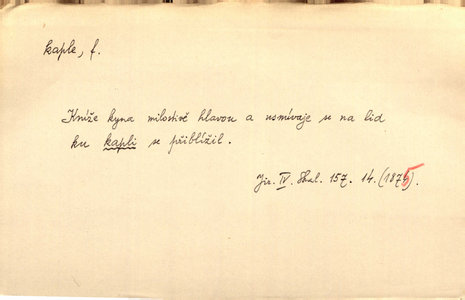 kaple, f.
Kníže kyna milostivě hlavou a usmívaje se na lid
ku kapli se přiblížil.
Jir. IV. Skal. 157. 14. (1875).